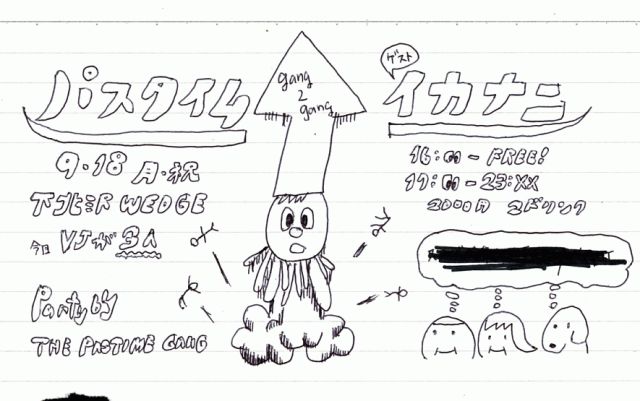 パスタイム
gang
2
gang
ゲスト
イカナニ
9・18 月・祝
下北沢 WEDGE
今日 VJが3人
Party by
THE PASTIME GANG
16:00 - FREE!
- 23:XX
2000円 2ドリンク